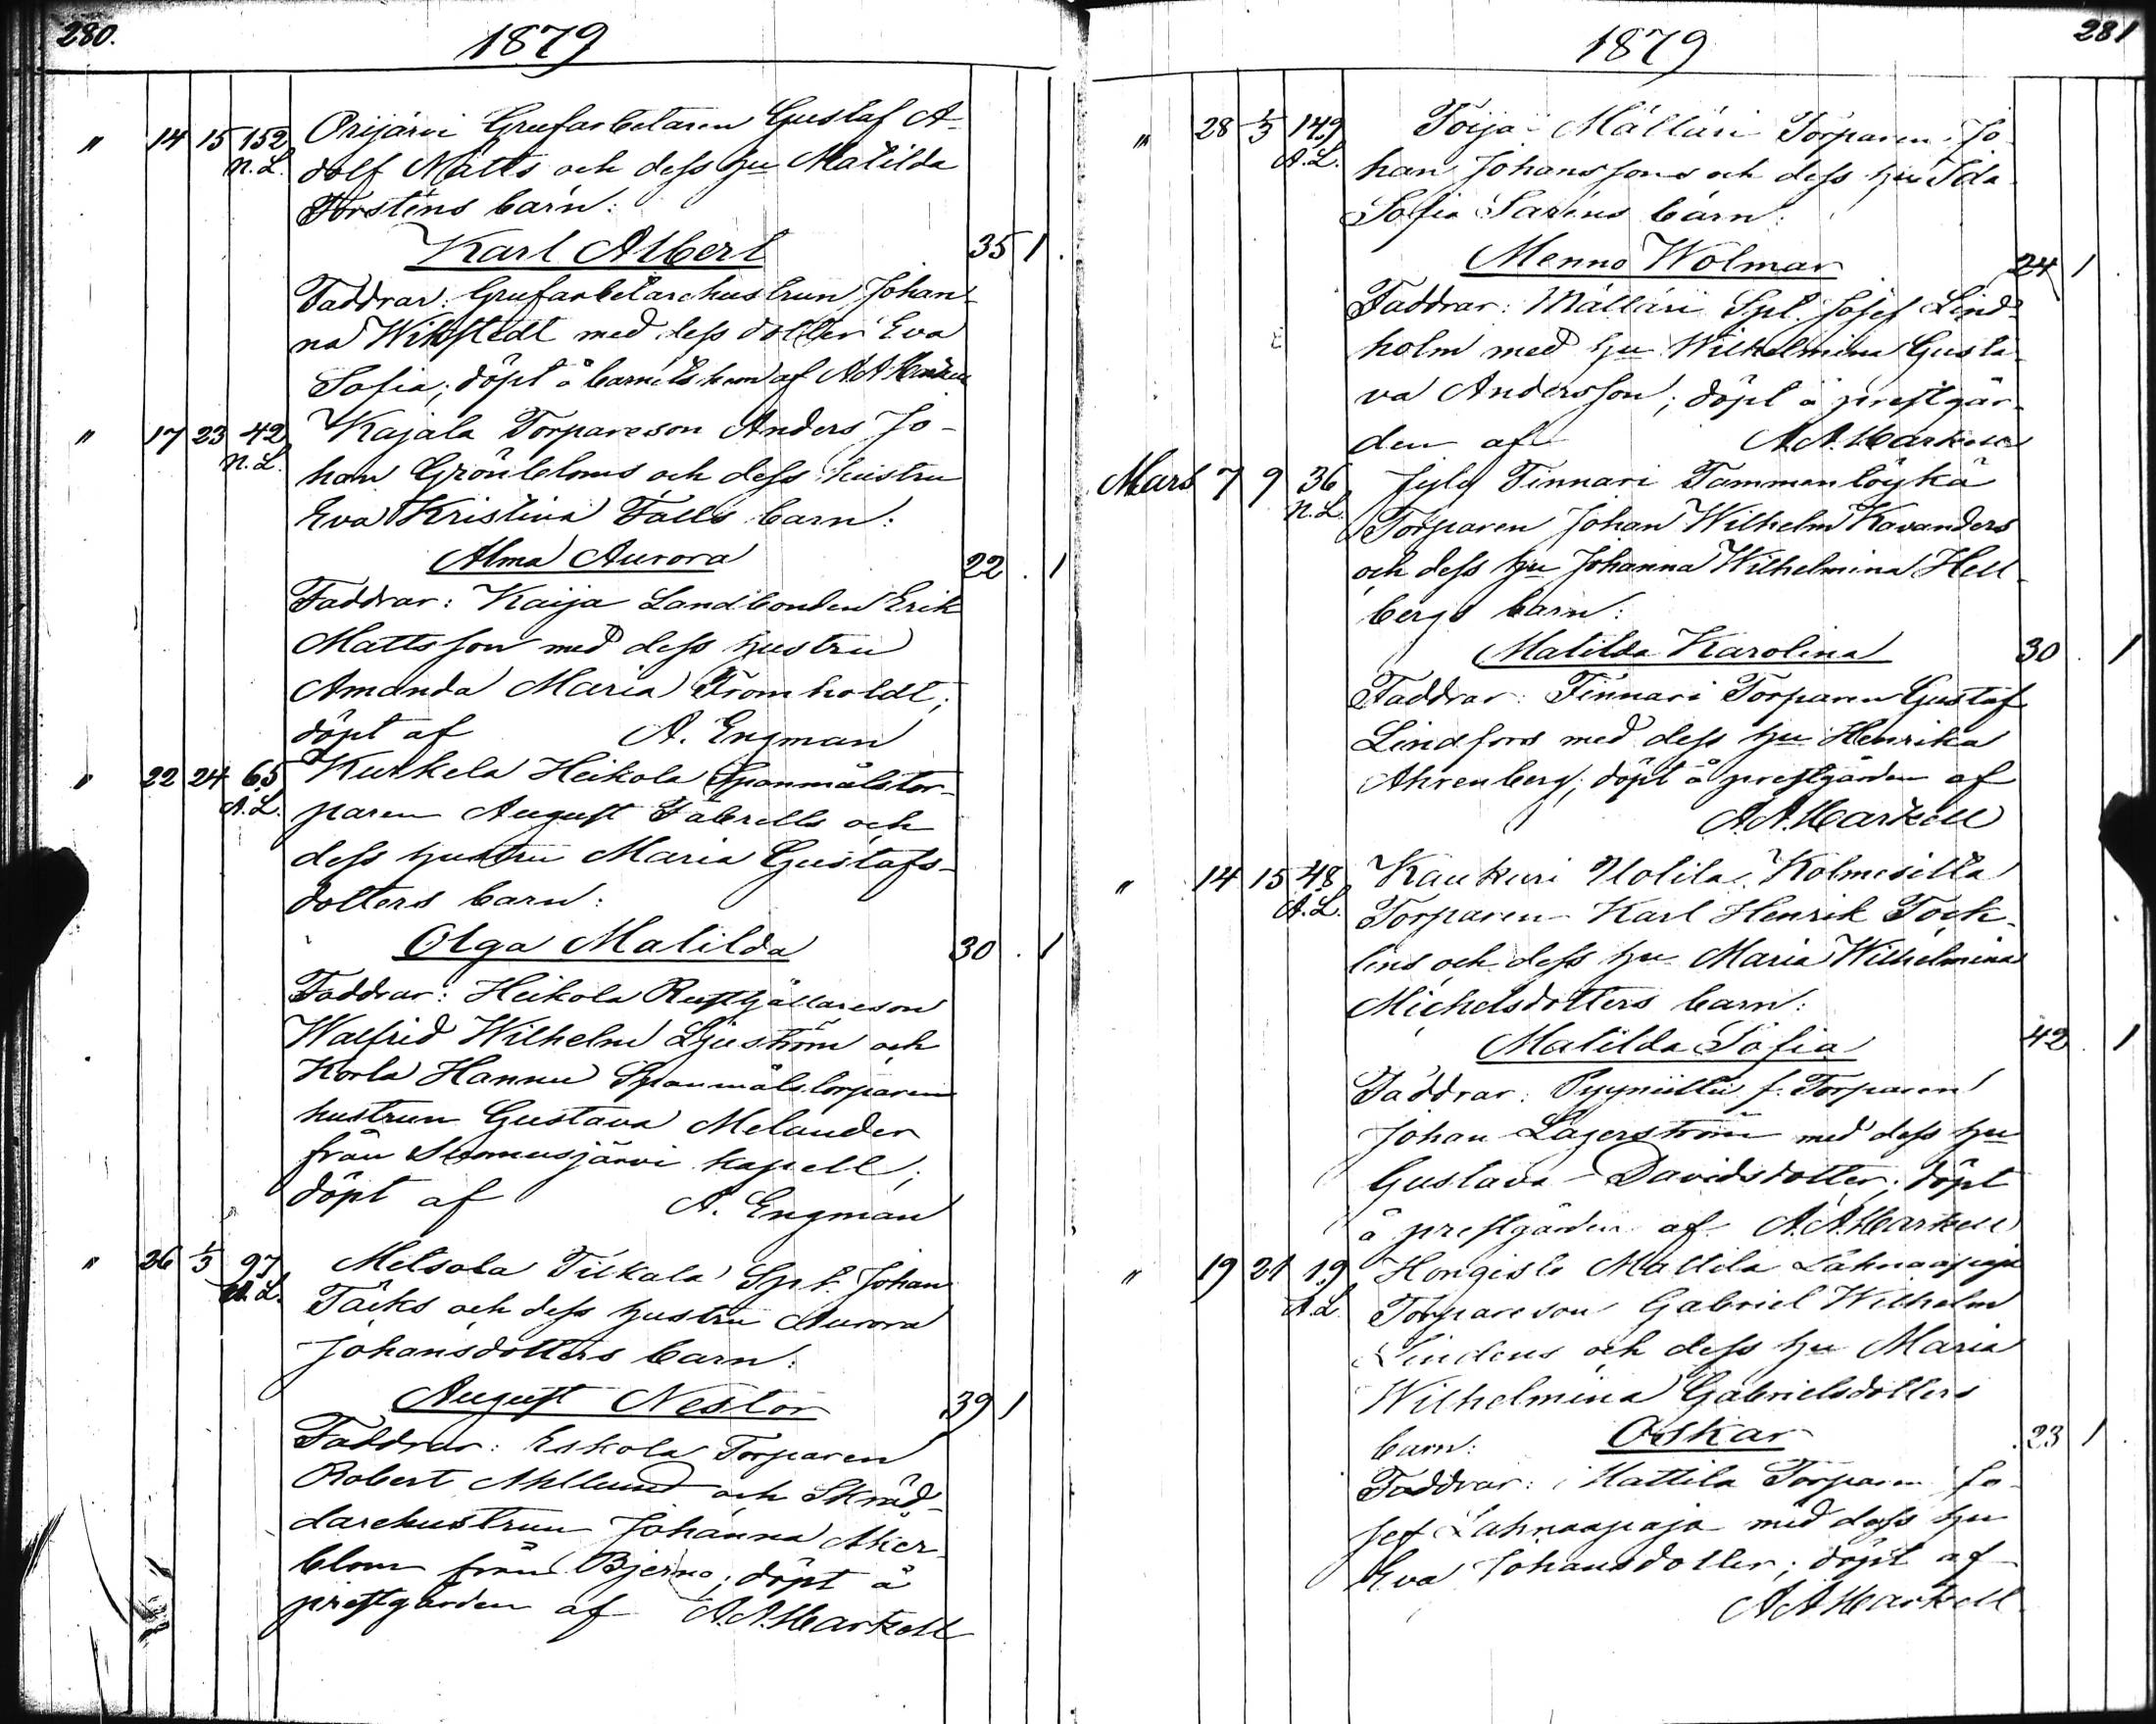 280.
1879
" 14 15 152 Orijärvi Grufarbetaren Gustaf A-
N.L. dolf Matts och dess hu Matilda
Torstens barn:
Karl Albert 35 1.
Faddrar: Grufarbetarehustrun Johan-
na Wikstedt med dess dotter Eva
Sofia; döpt å barnets hem af A.A.
" 17 23 42 Kajala Torpareson Anders Jo-
N.L. han Grönbloms och dess hustru
Eva Kristina Falls barn:
Alma Aurora 22 . 1
Faddrar: Kaija Landbonden Erik
Mattsson med dess hustru
Amanda Maria Fromholdt;
döpt af A. Engman
" 22 24 65 Kurkela Heikola Spanmålstor-
A.L. paren August Fabrells och
dess hustru Maria Gustafs-
dotters barn:
Olga Matilda 30 . 1
Faddrar: Heikola Rusthållareson
Walfrid Wilhelm Ljuström och
Korla Hannu Spanmålstorparen
hustrun Gustava Melander
från Somusjärvi kapell;
döpt af A. Engman
" 26 1/3 97 Metsola Tilkala Spt. Johan
A.L. Täcks och dess hustru Aurora
Johansdotters barn:
August Nestor 39 1
Faddrar: Eskola Torparen
Robert Ahllund och Skräd-
darehustrun Johanna Åker-
blom från Bjerno; döpt å
prestgården af A.A. Markell
281
1879
" 28 1/3 149 Toija Mälläri Torparen Jo-
A.L. han Johanssons och dess hu Ida
Sofia Sarens barn:
Menno Wolmar 24 1
Faddrar: Mälläri Spt. Josef Lind-
holm med hu Wilhelmina Gusta-
va Andersson; döpt å prestgår-
den af A.A. Markell
Mars 7 9 36 Jyly Tinnari Tammenlöykä
N.L. Torparen Johan Wilhelm Kavanders
och dess hu Johanna Wilhelmina Hell-
bergs barn:
Matilda Karolina 30 . 1
Faddrar: Tinnari Torparen Gustaf
Lindfors med dess hu Henrika
Ahrenberg; döpt å prestgården af
A.A. Markell
" 14 15 48 Kaukuri Uotila Kolmesilta
A.L. Torparen Karl Henrik Tock-
lins och dess hu Maria Wilhelmina
Michelsdotters barn:
Matilda Sofia 42 . 1
Faddrar: f. Torparen
Johan Lagerström med dess hu
Gustava Davidsdotter; döpt
å prestgården af A.A. Markell
" 19 21 19 Hongisto Mattila Lahnaapaja
A.L. Torpareson Gabriel Wilhelm
Lindens och dess hu Maria
Wilhelmina Gabrielsdotters
barn: Oskar 23 1
Faddrar: Mattila Torparen Jo-
sef Lahnaapaja med dess hu
Eva Johansdotter; döpt af
A.A. Markell